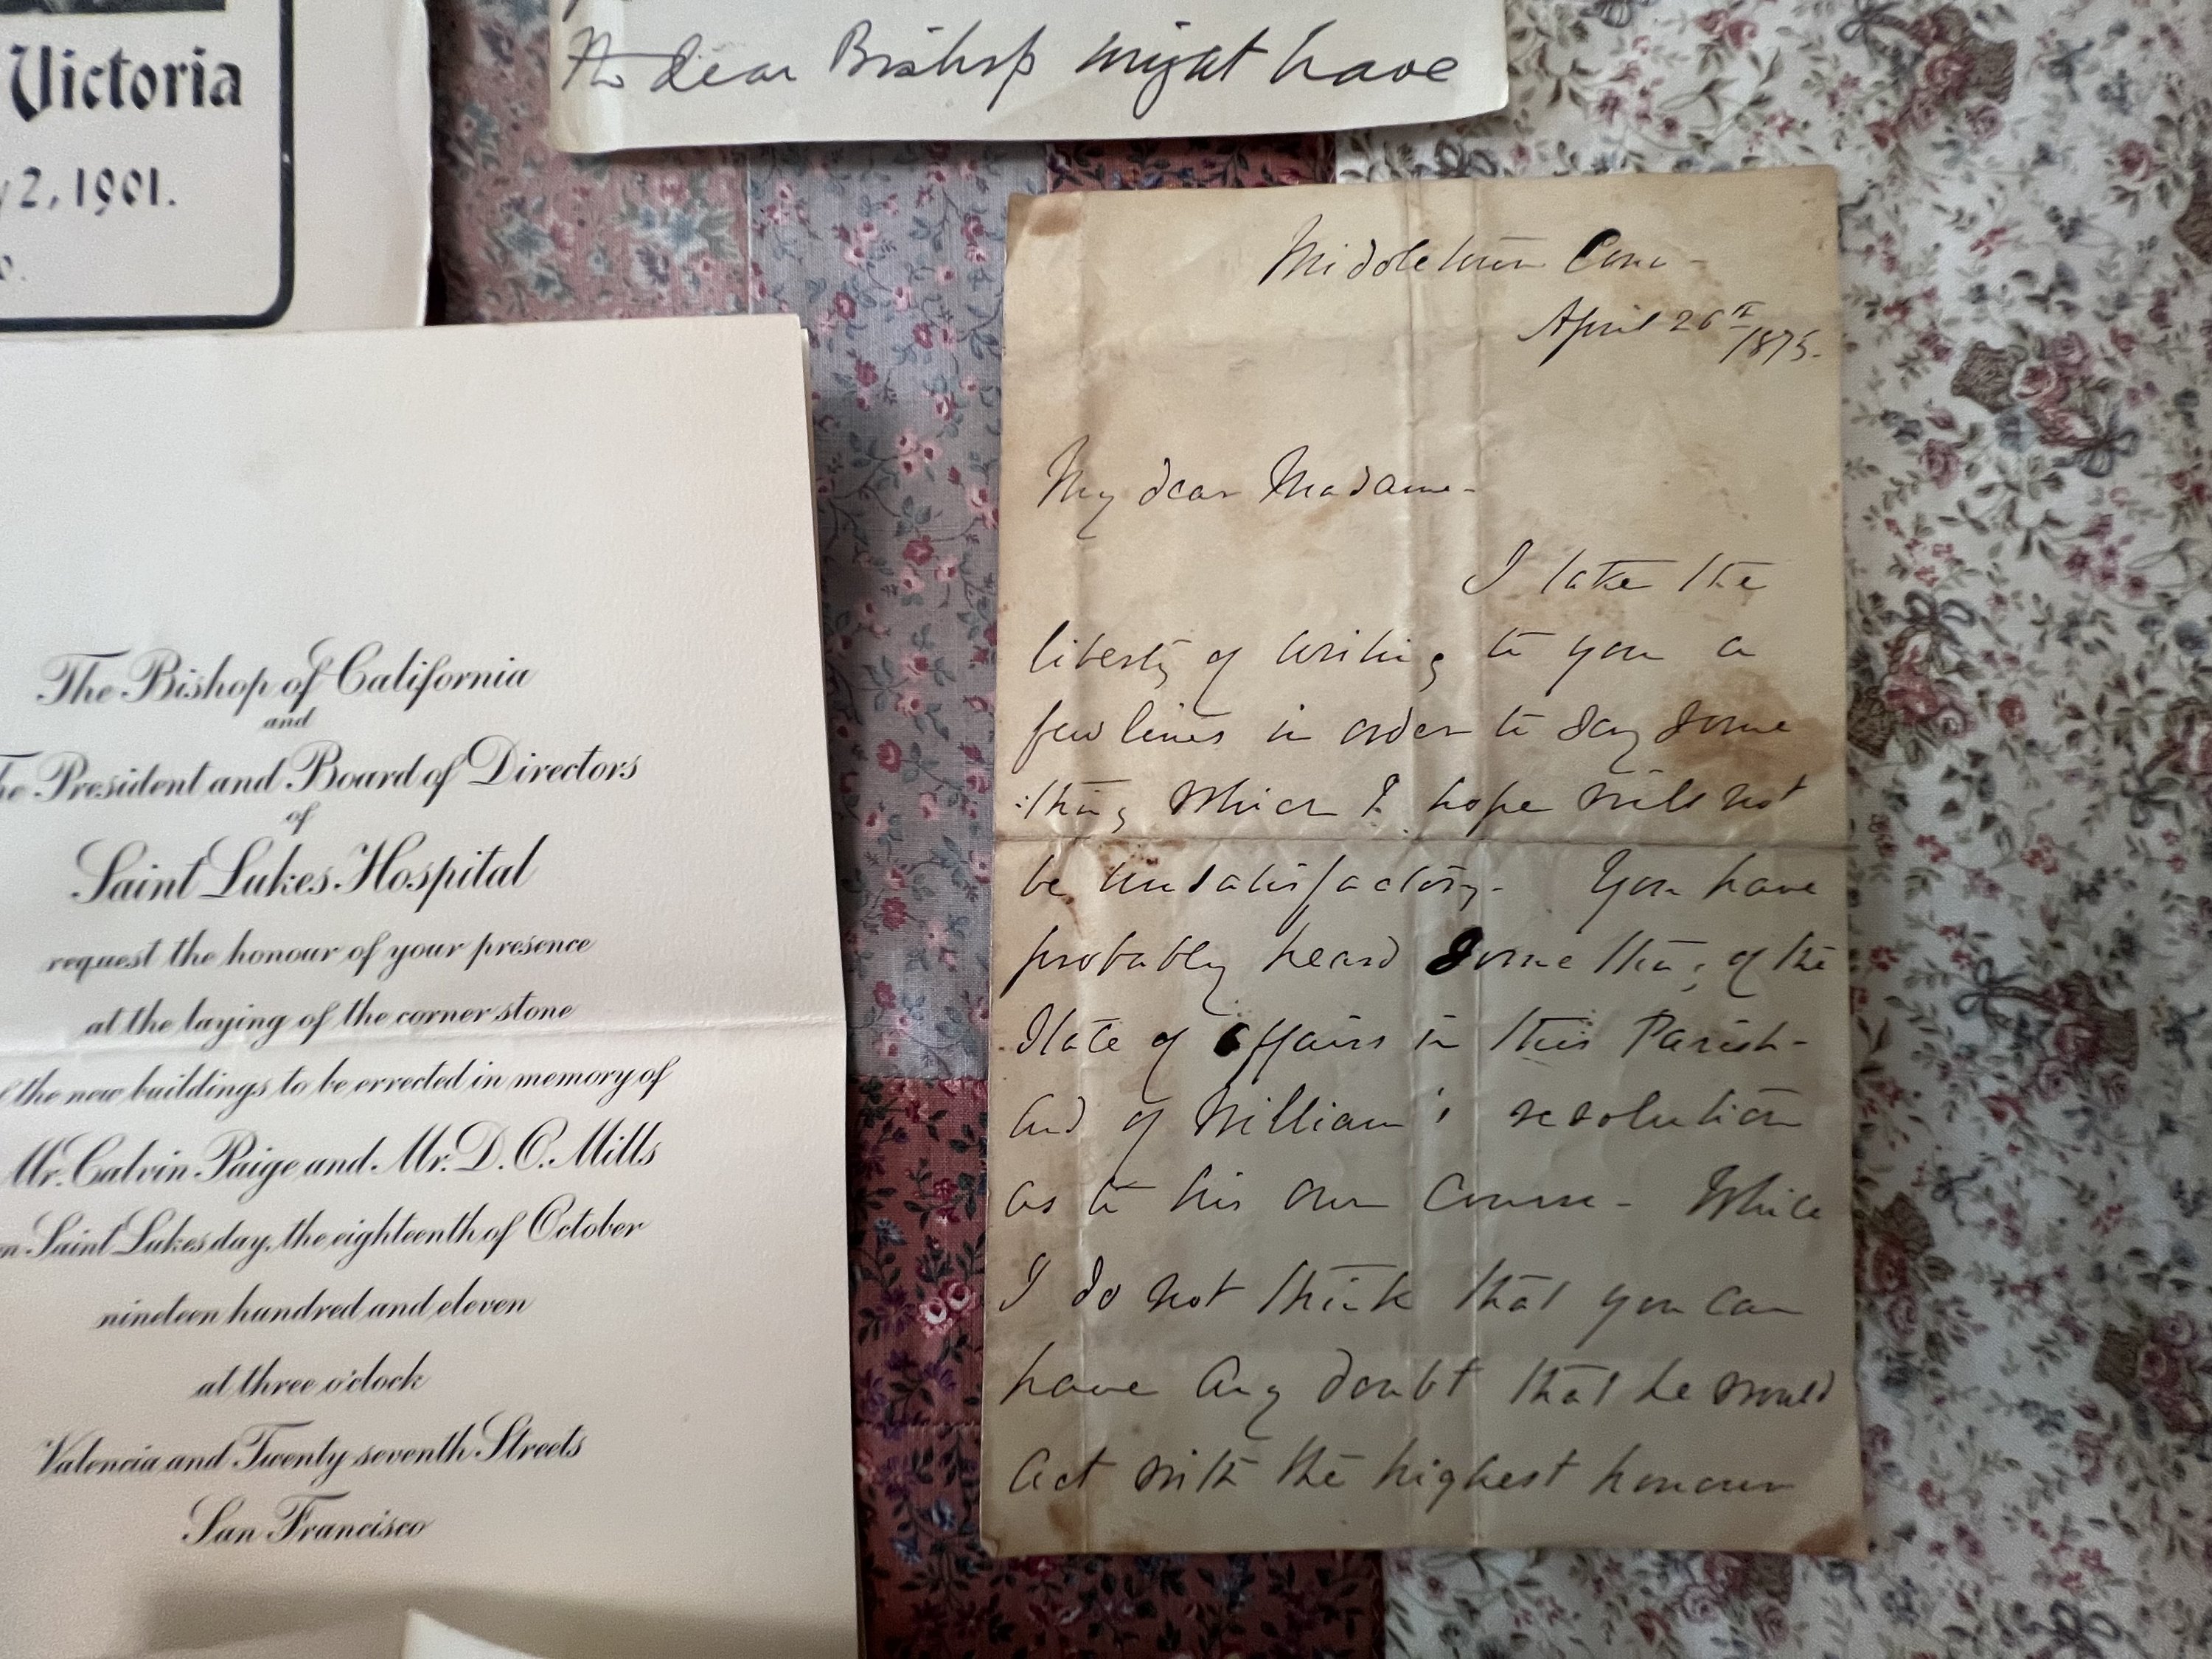 Victoria
2, 1901.
o.
dear Bishop might have
The Bishop of California
and
The President and Board of Directors
of
Saint Lukes Hospital
request the honour of your presence
at the laying of the corner stone
of the new buildings to be errected in memory of
Mr. Calvin Paige and Mr. D. O. Mills
on Saint Lukes day, the eighteenth of October
nineteen hundred and eleven
at three o'clock
Valencia and Twenty seventh Streets
San Francisco
Middletown Conn -
April 26th
1875.
My dear Madame -
I take the
liberty of writing to you a
few lines in order to say some
:thing which I hope will not
be unsatisfactory - You have
probably heard something of the
State of affairs in this Parish -
and of William's resolution
as to his own course - While
I do not think that you can
have any doubt that he would
act with the highest honour